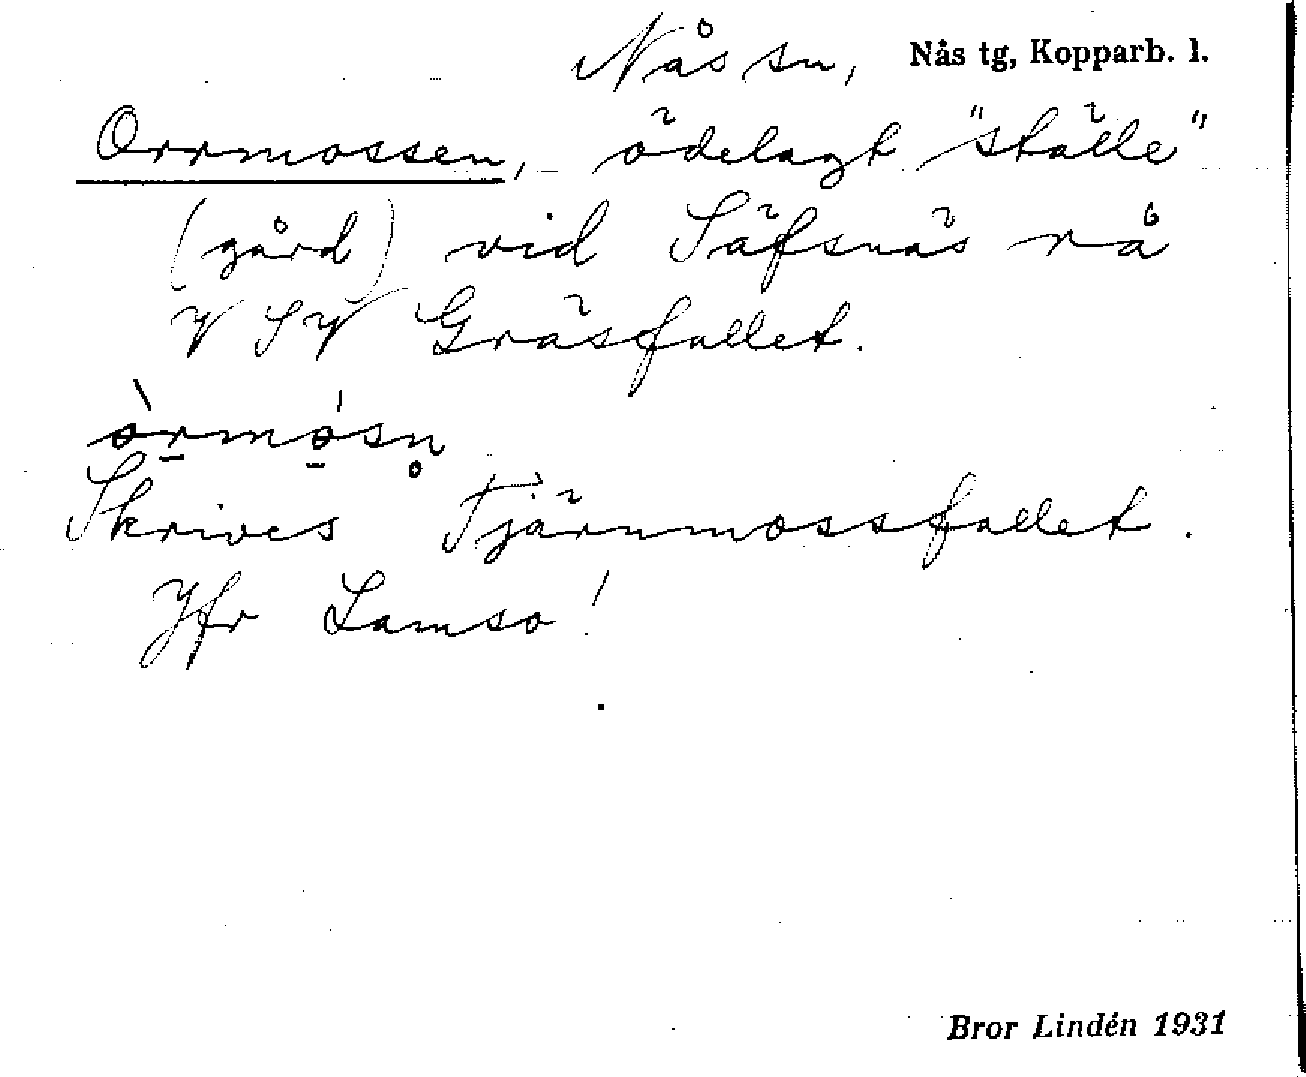 Nås sn, Nås tg, Kopparb. l.
Orrmossen, ödelagt "ställe"
(gård) vid Säfsnäs rå
V SV Gräsfallet.
òr̠mó̠sn̥
Skrives Tjärnmossfallet.
Jfr Lamso!
Bror Lindén 1931